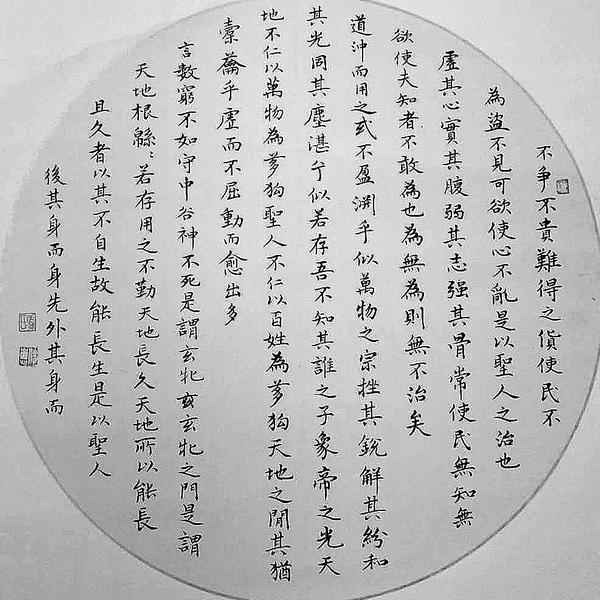 不爭不貴難得之貨使民不
為盜不見可欲使心不亂是以聖人之治也
虛其心實其腹弱其志强其骨常使民無知無
欲使夫知者不敢為也為無為則無不治矣
道沖而用之或不盈淵乎似萬物之宗挫其銳解其紛和
其光同其塵湛兮似若存吾不知其誰之子象帝之光天
地不仁以萬物為芻狗聖人不仁以百姓為芻狗天地之閒其猶
橐籥乎虛而不屈動而愈出多
言數窮不如守中谷神不死是謂玄牝玄玄牝之門是謂
天地根緜〻若存用之不勤天地長久天地所以能長
且久者以其不自生故能長生是以聖人
後其身而身先外其身而